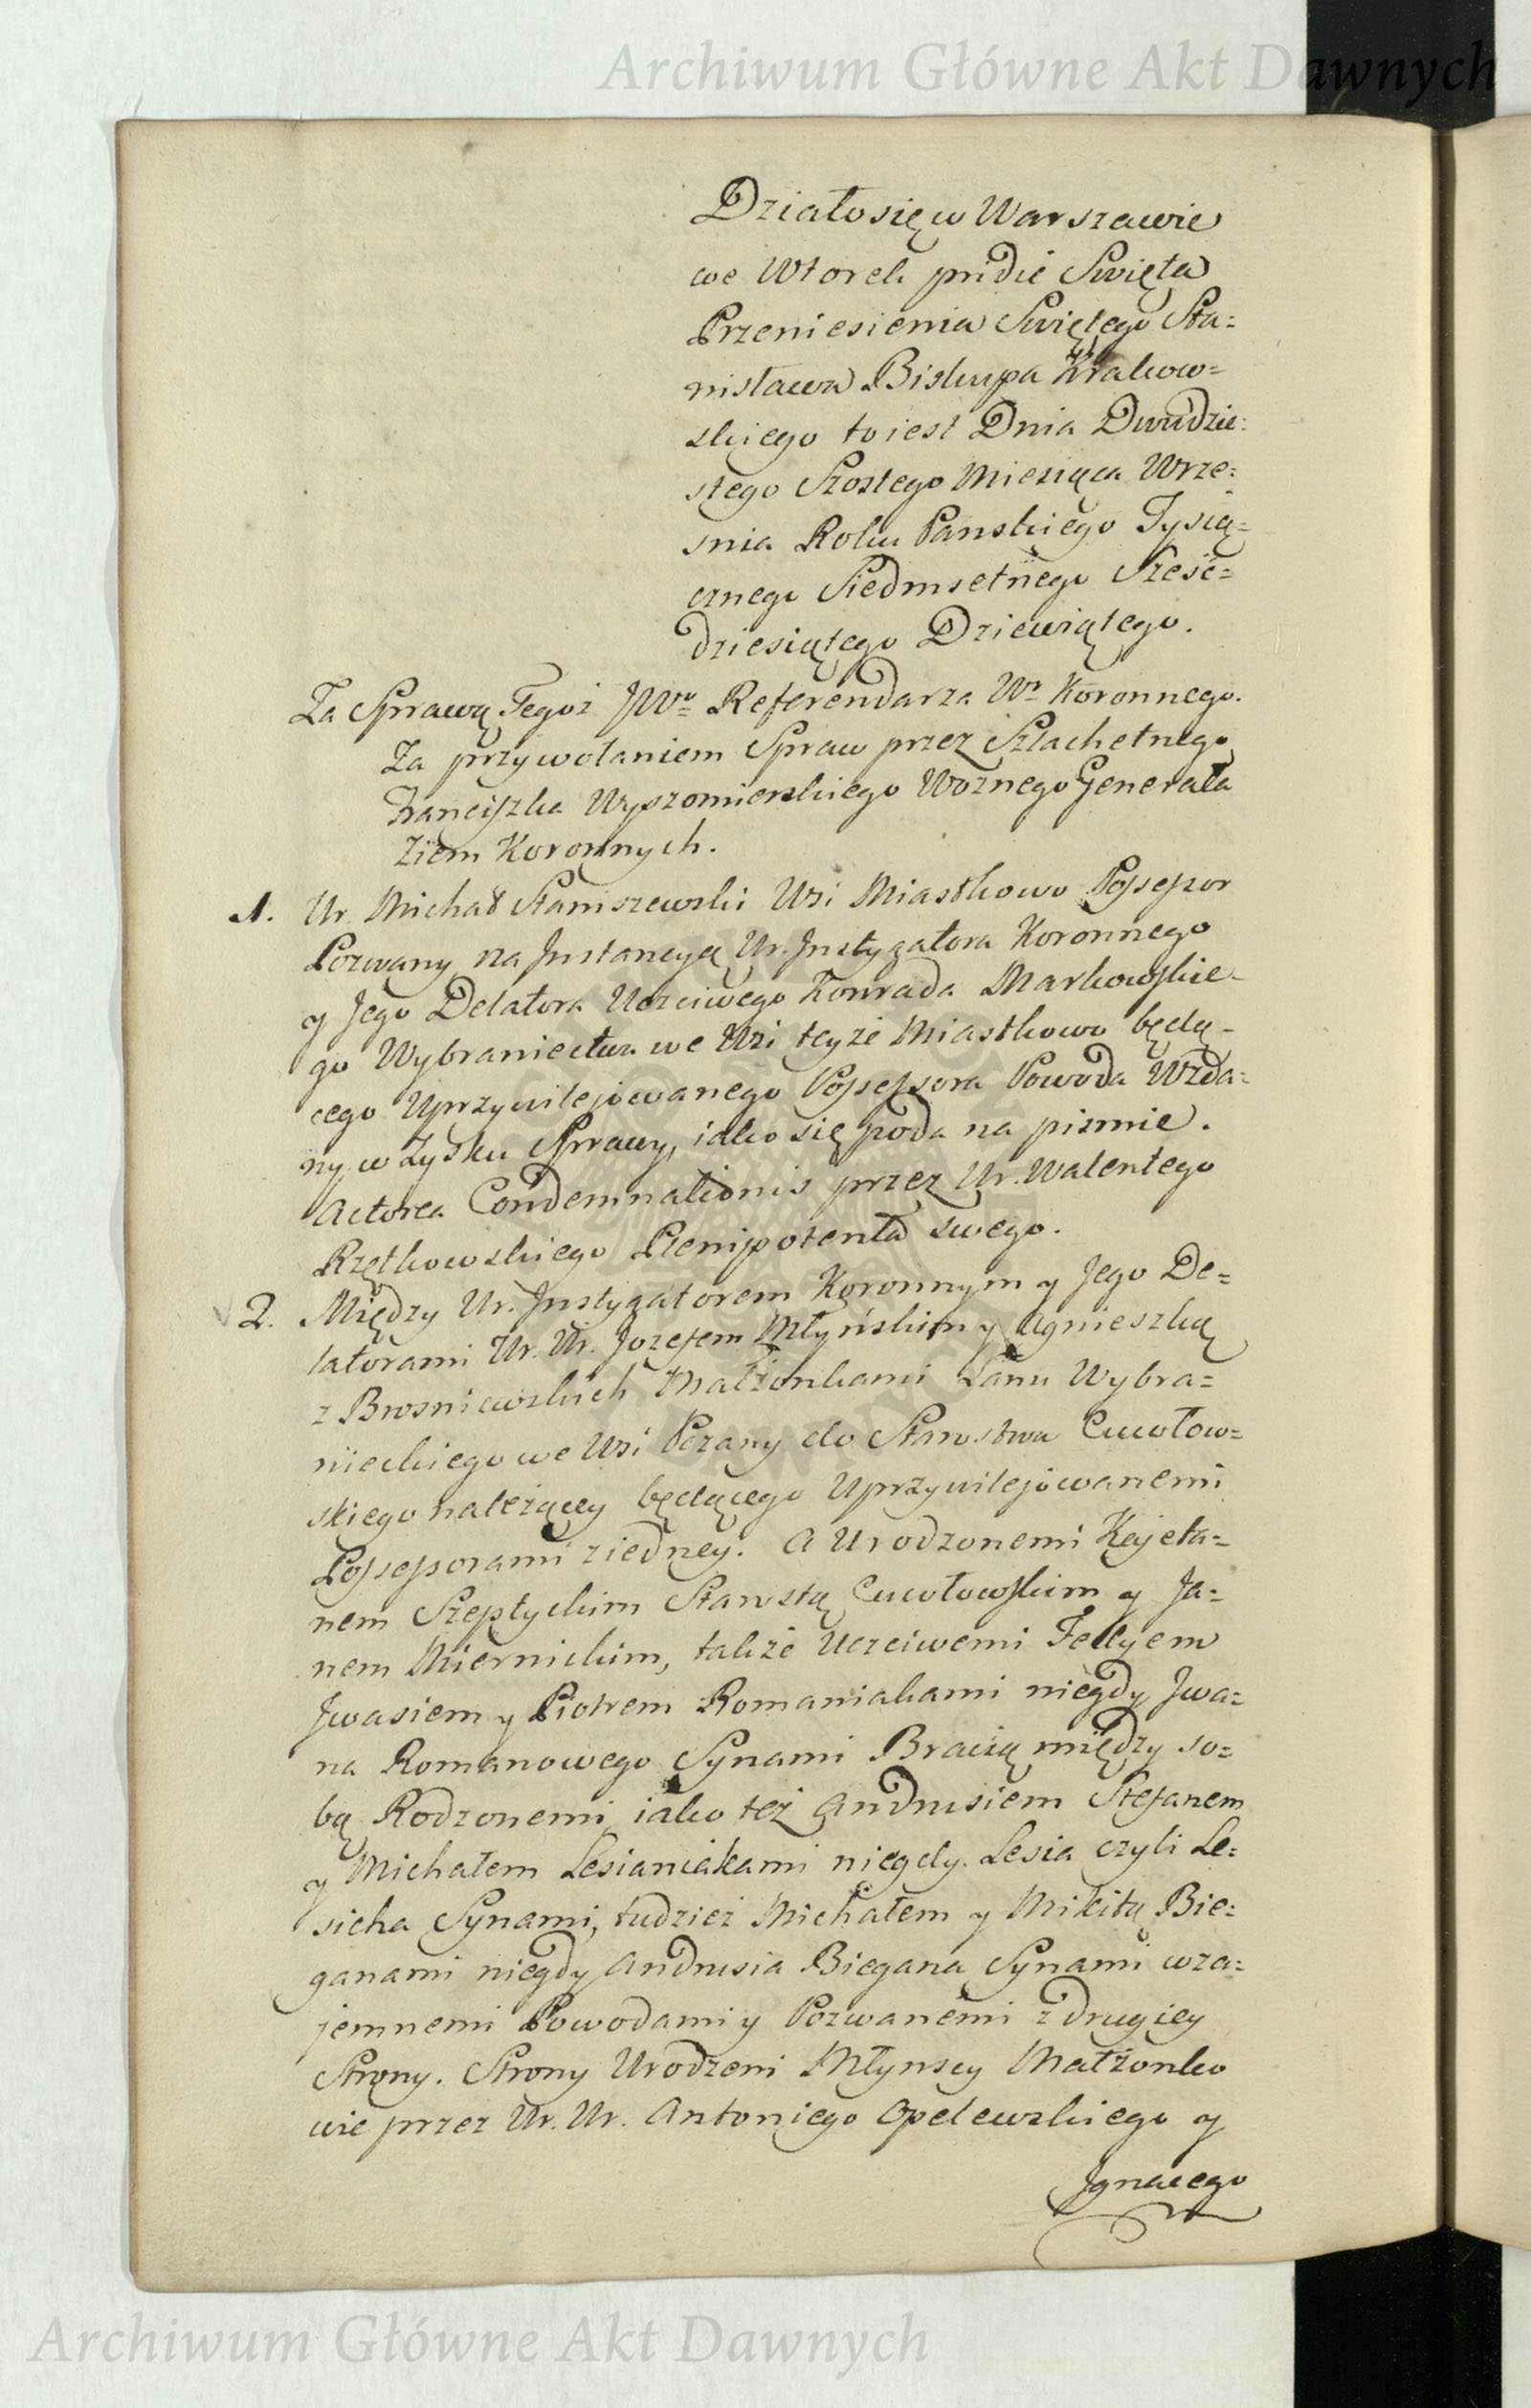 Archiwum Główne Akt Dawnych
Działo się w Warszawie
we Wtorek pridie Swięta
Przeniesienia Swiętego Sta=
nisława Biskupa Krakow=
skiego to iest Dnia Dwudzie=
stego Szostego Miesiąca Wrze=
snia Roku Panskiego Tysią=
cznego Siedmsetnego Sześć=
dziesiątego Dziewiątego.
Za Sprawą Tegoż JWo Referendarza Wo Koronnego.
Za przywołaniem Spraw przez Szlachetnego
Franciszka Wyszomierskiego Woznego Generała
Ziem Koronnych.
1. Ur. Michał Staniszewski Wsi Miastkowo Possessor
Pozwany na Instancyą Ur. Instygatora Koronnego
y Jego Delatora Uczciwego Konrada Markowskie=
go Wybraniectwa we Wsi teyże Miastkowo będą=
cego Uprzywilejowanego Possessora Powoda Wzda=
ny w Zysku Sprawy, iako się poda na pismie.
Actorea Condemnationis przez Ur. Walentego
Rzętkowskiego Plenipotenta swego.
2. Między Ur. Instygatorem Koronnym y Jego De=
latorami Ur. Ur. Jozefem Młyńskim y Agnieszką
z Brosniewskich Małżonkami Łanu Wybra=
nieckiego we Wsi Pozany do Starostwa Cucołow=
skiego należącey będącego Uprzywilejowanemi
Possessorami z iedney. A Urodzonemi Kajeta=
nem Szeptyckim Starostą Cucołowskim y Ja=
nem Miernickim, także Uczciwemi Fecyem
Jwasiem y Piotrem Romaniakami niegdy Jwa=
na Romanowego Synami Bracią między so=
bą Rodzonemi, iako też Andrusiem Stefanem
y Michałem Lesianiakami niegdy Lesia czyli Le=
sicha Synami, tudzież Michałem y Mikitą Bie=
ganami niegdy Andrusia Biegana Synami wza=
jemnemi Powodami y Pozwanemi z drugiey
Strony. Strony Urodzeni Młynscy Małżonko
wie przez Ur. Ur. Antoniego Opelewskiego y
Jgnacego
Archiwum Główne Akt Dawnych